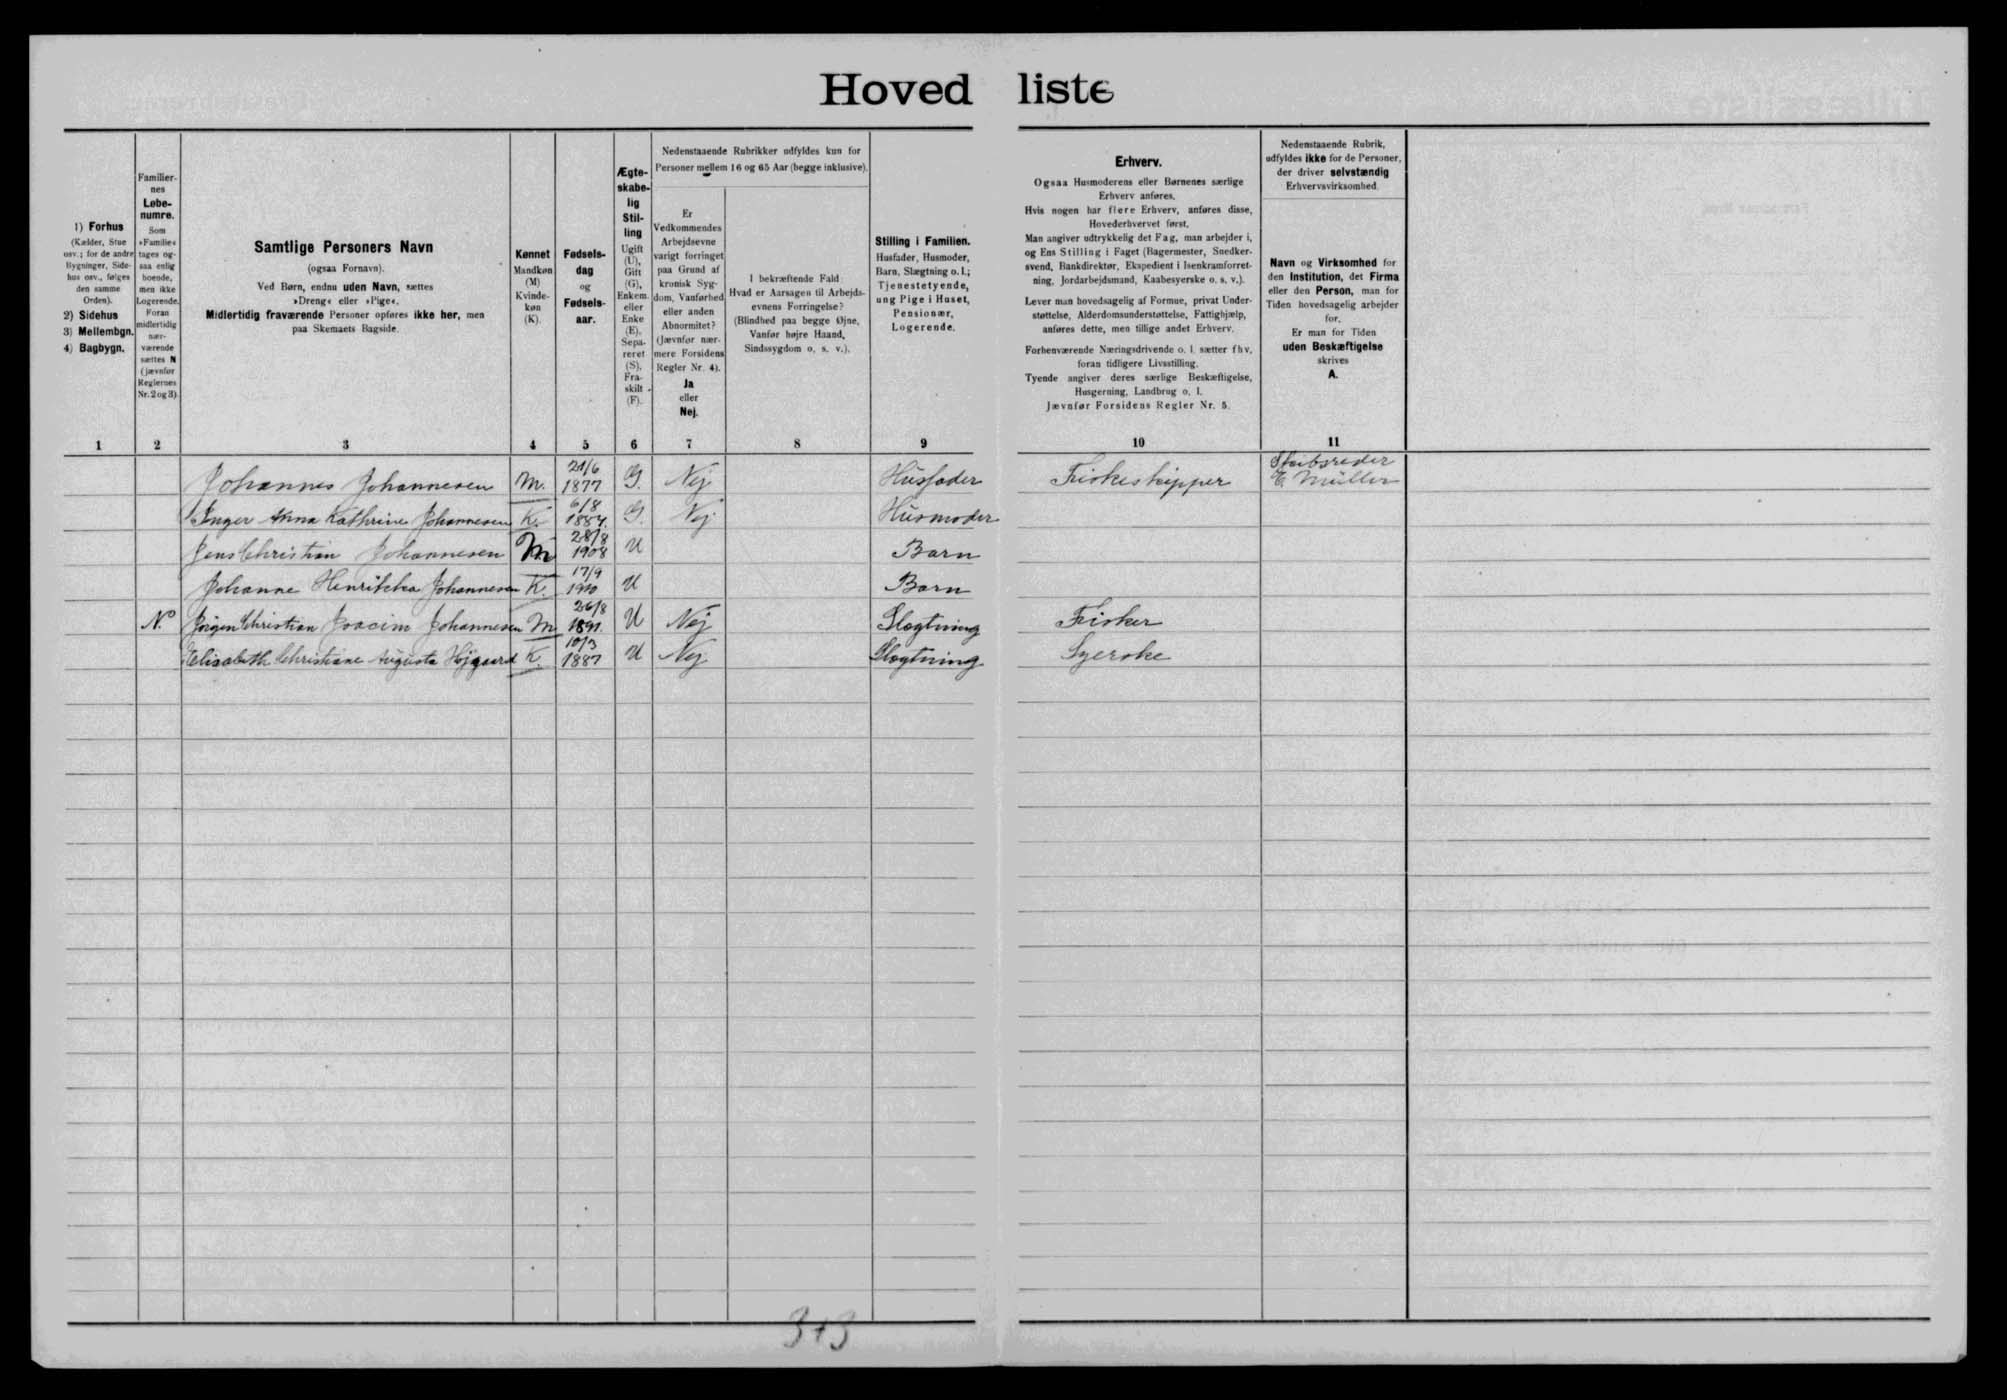 Hovedliste
1) Forhus
(Kælder, Stue
osv.; for de andre
Bygninger, Side-
hus osv., følges
den samme
Orden).
2) Sidehus
3) Mellembgn.
4) Bagbygn.
1
Familier-
nes
Løbe-
numre.
Som
»Familie«
tages og-
saa enlig
boende,
men ikke
Logerende.
Foran
midlertidig
nær-
værende
sættes N
(jævnfør
Reglernes
Nr. 2 og 3).
2
Samtlige Personers Navn
(ogsaa Fornavn).
Ved Børn, endnu uden Navn, sættes
»Dreng« eller »Pige«.
Midlertidig fraværende Personer opføres ikke her, men
paa Skemaets Bagside.
3
Kønnet
Mandkøn
(M)
Kvinde-
køn
(K).
4
Fødsels-
dag
og
Fødsels-
aar.
5
Ægte-
skabe-
lig
Stil-
ling
Ugift
(U),
Gift
(G),
Enkem.
eller
Enke
(E),
Sepa-
reret
(S),
Fra-
skilt
(F).
6
Nedenstaaende Rubrikker udfyldes kun for
Personer mellem 16 og 65 Aar (begge inklusive).
Er
Vedkommendes
Arbejdsevne
varigt forringet
paa Grund af
kronisk Syg-
dom, Vanførhed
eller anden
Abnormitet?
(Jævnfør nær-
mere Forsidens
Regler Nr. 4).
Ja
eller
Nej.
7
I bekræftende Fald
Hvad er Aarsagen til Arbejds-
evnens Forringelse?
(Blindhed paa begge Øjne,
Vanfør højre Haand,
Sindssygdom o. s. v.).
8
Stilling i Familien.
Husfader, Husmoder,
Barn, Slægtning o. l.;
Tjenestetyende,
ung Pige i Huset,
Pensionær,
Logerende.
9
Erhverv.
Ogsaa Husmoderens eller Børnenes særlige
Erhverv anføres.
Hvis nogen har flere Erhverv, anføres disse,
Hovederhvervet først.
Man angiver udtrykkelig det Fag, man arbejder i,
og Ens Stilling i Faget (Bagermester, Snedker-
svend, Bankdirektør, Ekspedient i Isenkramforret-
ning, Jordarbejdsmand, Kaabesyerske o. s. v.).
Lever man hovedsagelig af Formue, privat Under-
støttelse, Alderdomsunderstøttelse, Fattighjælp,
anføres dette, men tillige andet Erhverv.
Forhenværende Næringsdrivende o. l. sætter fhv.
foran tidligere Livsstilling.
Tyende angiver deres særlige Beskæftigelse,
Husgerning, Landbrug o. l.
Jævnfør Forsidens Regler Nr. 5.
10
Nedenstaaende Rubrik,
udfyldes ikke for de Personer,
der driver selvstændig
Erhvervsvirksomhed.
Navn og Virksomhed for
den Institution, det Firma
eller den Person, man for
Tiden hovedsagelig arbejder
for.
Er man for Tiden
uden Beskæftigelse
skrives
A.
11
Johannes Johannesen M. 21/6 1877 G. Nej Husfader Fiskeskipper Skibsreder E. Müller
Inger Anna Kathrine Johannesen K. 6/8 1884. G. Nej Husmoder
Jens Christian Johannesen M 28/8 1908 U Barn
Johanne Henrikka Johannesen K. 17/9 1910 U Barn
N. Jörgen Christian Joacim Johannesen M 26/8 1891. U Nej Slægtning Fisker
Elisabeth Christiane Augusta Højgaard K. 10/3 1887 U Nej Slægtning Syerske
3+3